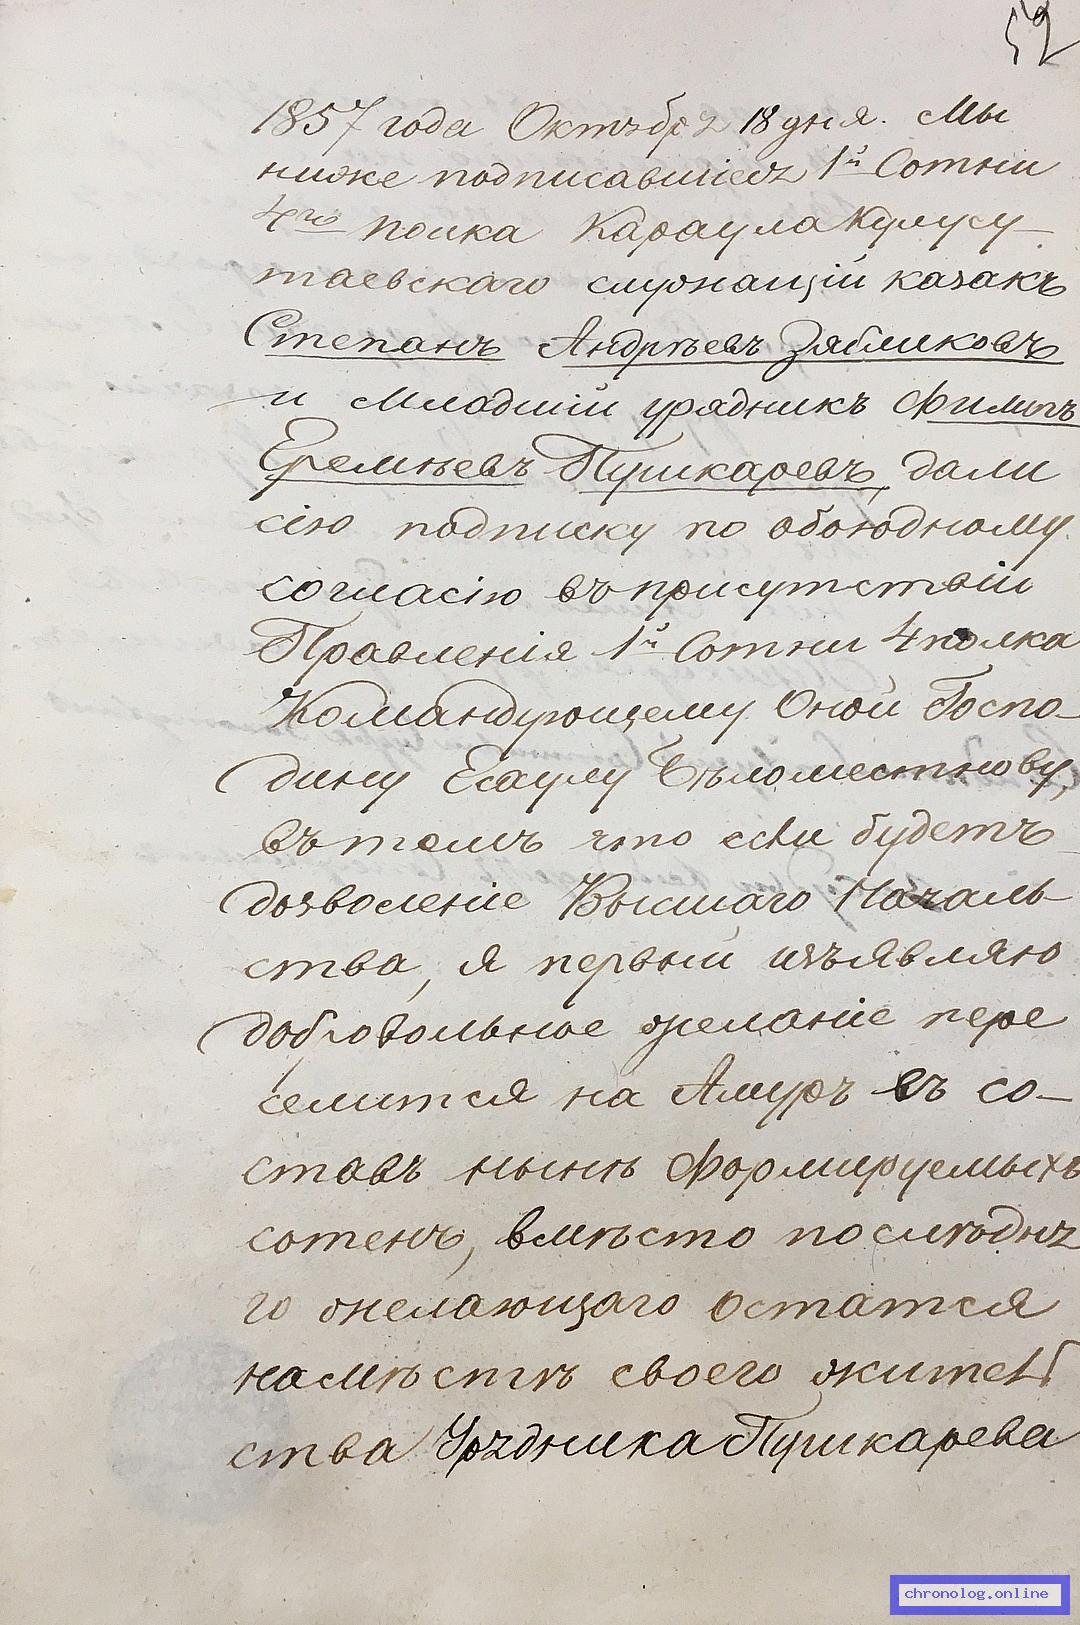 52
1857 года Октября 18 дня. Мы
ниже подписавшiеся 1й Сотни
4го полка Караула Кулусу-
таевскаго служащiй казакъ
Степанъ Андрѣевъ Зябликовъ
и Младшiй урядникъ Филипъ
Еремѣевъ Пушкаревъ, дали
сiю подписку по обоюдному
согласiю въ присутствiи
Правленiя 1й Сотни 4 полка
Командующему Оной Госпо-
дину Есаулу Бѣломестнову,
въ томъ что если будетъ
дозволенiе Высшаго Началь-
ства, я первый изъявляю
добровольное желанiе пере
селится на Амуръ въ со-
ставъ нынѣ формируемыхъ
сотенъ, вмѣсто послѣдня
го желающаго остатся
на мѣстѣ своего житель
ства Урядника Пушкарева
chronolog.online